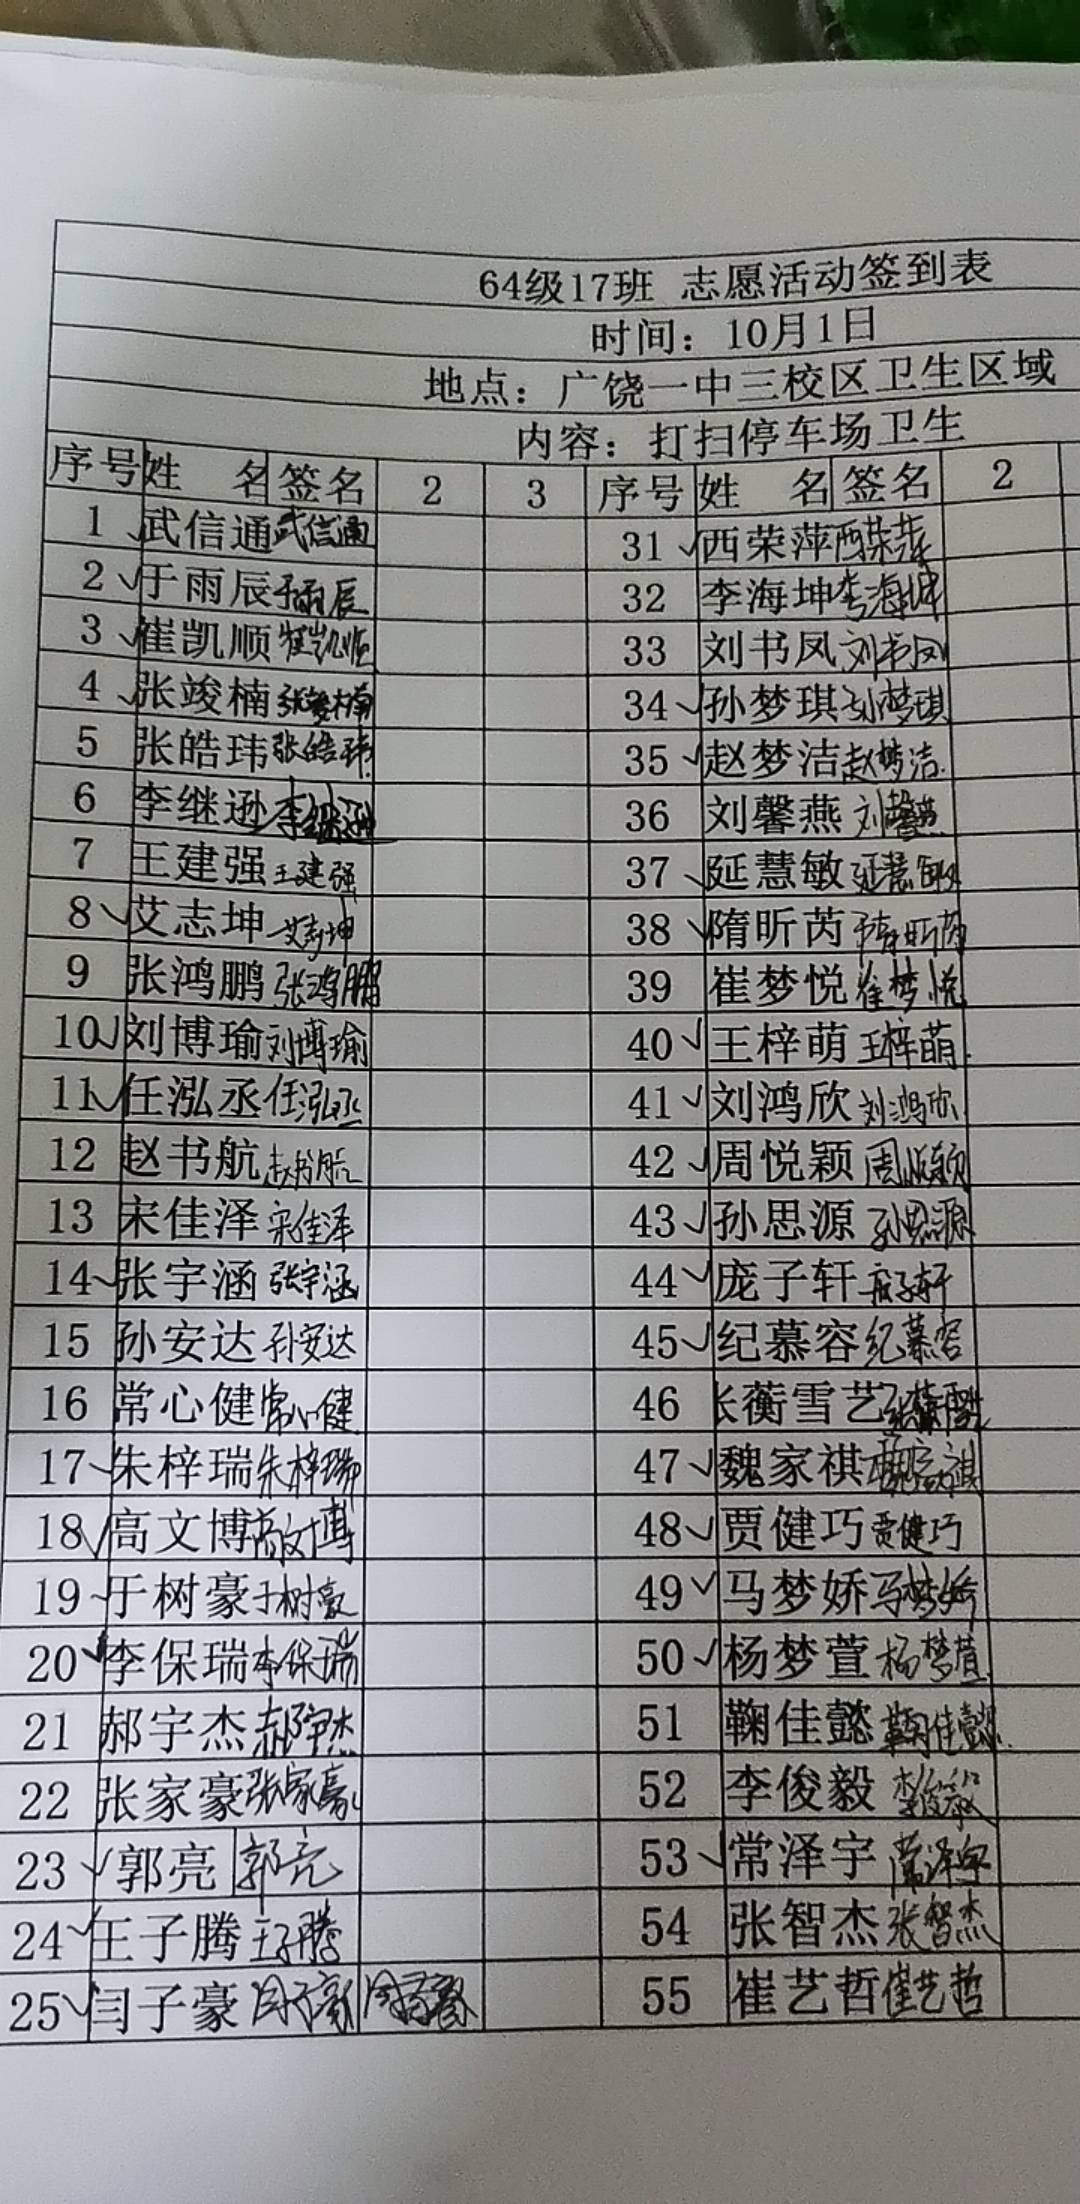 64级17班 志愿活动签到表
时间：10月1日
地点：广饶一中三校区卫生区域
内容：打扫停车场卫生
序号 姓 名 签名 2 3 序号 姓 名 签名 2
1 ✓ 武信通 武信通 31 ✓ 西荣萍 西荣萍
2 ✓ 于雨辰 于雨辰 32 李海坤 李海坤
3 ✓ 崔凯顺 崔凯顺 33 刘书凤 刘书凤
4 ✓ 张竣楠 张竣楠 34 ✓ 孙梦琪 孙梦琪
5 张皓玮 张皓玮 35 ✓ 赵梦洁 赵梦洁
6 李继逊 李继逊 36 刘馨燕 刘馨燕
7 王建强 王建强 37 ✓ 延慧敏 延慧敏
8 ✓ 艾志坤 艾志坤 38 ✓ 隋昕芮 隋昕芮
9 张鸿鹏 张鸿鹏 39 崔梦悦 崔梦悦
10 ✓ 刘博瑜 刘博瑜 40 ✓ 王梓萌 王梓萌
11 ✓ 任泓丞 任泓丞 41 ✓ 刘鸿欣 刘鸿欣
12 赵书航 赵书航 42 ✓ 周悦颖 周悦颖
13 宋佳泽 宋佳泽 43 ✓ 孙思源 孙思源
14 ✓ 张宇涵 张宇涵 44 ✓ 庞子轩 庞子轩
15 孙安达 孙安达 45 ✓ 纪慕容 纪慕容
16 常心健 常心健 46 张蘅雪艺
17 ✓ 朱梓瑞 朱梓瑞 47 ✓ 魏家祺 魏家祺
18 ✓ 高文博 高文博 48 ✓ 贾健巧 贾健巧
19 ✓ 于树豪 于树豪 49 ✓ 马梦娇 马梦娇
20 ✓ 李保瑞 李保瑞 50 ✓ 杨梦萱 杨梦萱
21 郝宇杰 郝宇杰 51 鞠佳懿 鞠佳懿
22 张家豪 张家豪 52 李俊毅 李俊毅
23 ✓ 郭亮 郭亮 53 ✓ 常泽宇 常泽宇
24 ✓ 王子腾 王子腾 54 张智杰 张智杰
25 ✓ 闫子豪 闫子豪 闫子豪 55 崔艺哲 崔艺哲